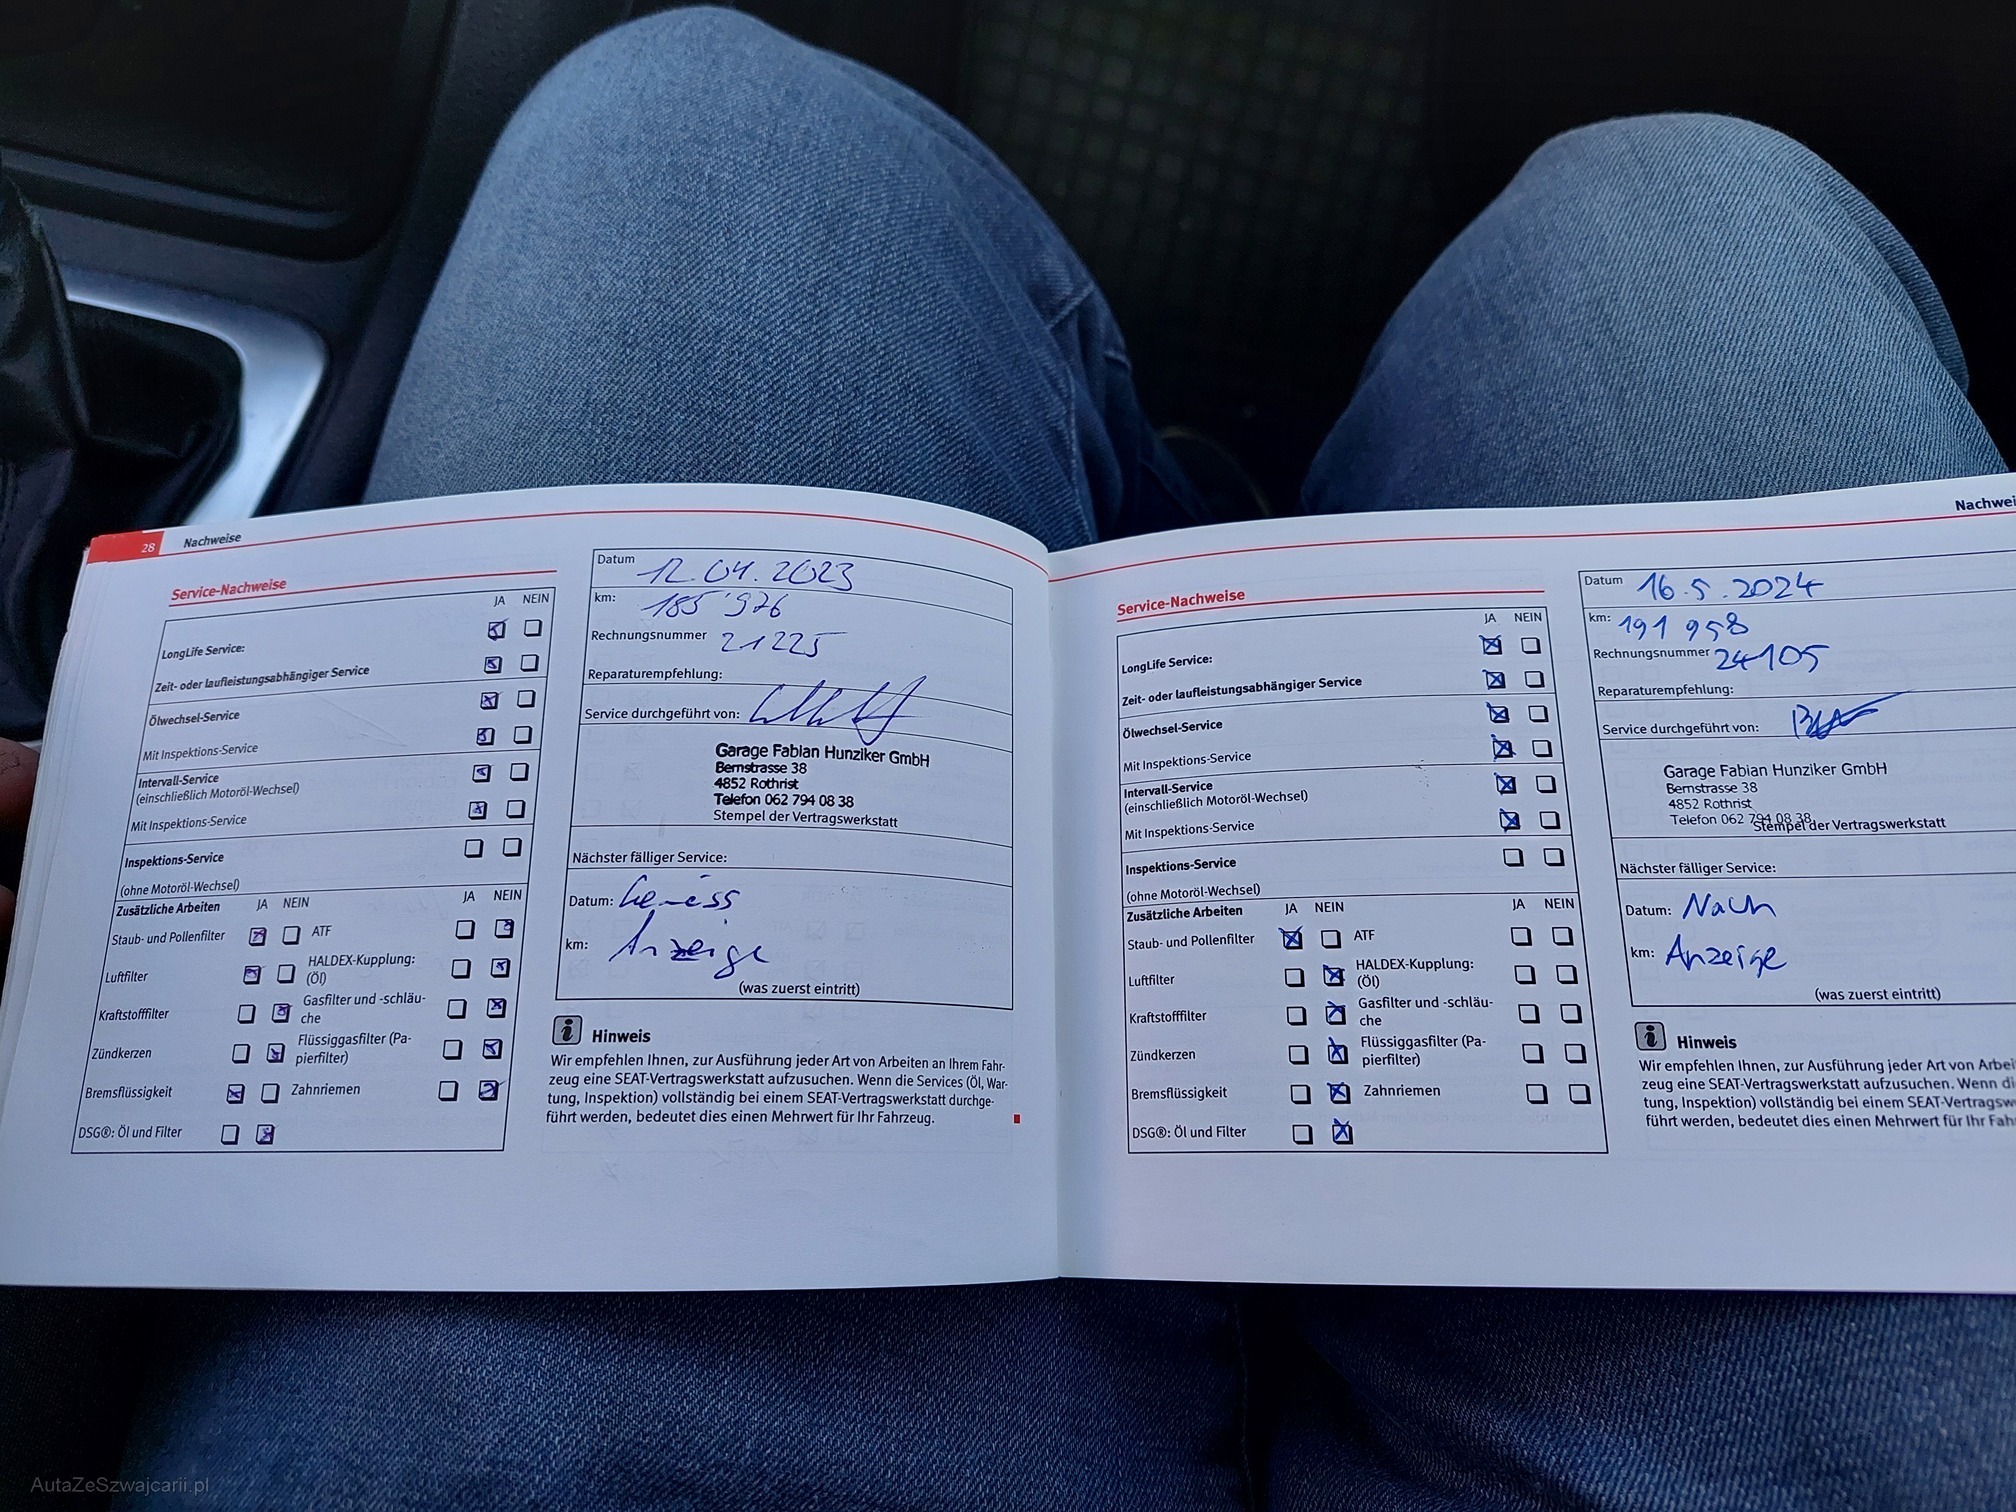 28 Nachweise
Service-Nachweise
JA NEIN
LongLife Service:
Zeit- oder laufleistungsabhängiger Service
Ölwechsel-Service
Mit Inspektions-Service
Intervall-Service
(einschließlich Motoröl-Wechsel)
Mit Inspektions-Service
Inspektions-Service
(ohne Motoröl-Wechsel)
Zusätzliche Arbeiten JA NEIN JA NEIN
Staub- und Pollenfilter ATF
Luftfilter HALDEX-Kupplung:
(Öl)
Kraftstofffilter Gasfilter und -schläu-
che
Zündkerzen Flüssiggasfilter (Pa-
pierfilter)
Bremsflüssigkeit Zahnriemen
DSG®: Öl und Filter
Datum 12.04.2023
km: 185'976
Rechnungsnummer 21225
Reparaturempfehlung:
Service durchgeführt von:
Garage Fabian Hunziker GmbH
Bernstrasse 38
4852 Rothrist
Telefon 062 794 08 38
Stempel der Vertragswerkstatt
Nächster fälliger Service:
Datum:
km: Anzeige
(was zuerst eintritt)
Hinweis
Wir empfehlen Ihnen, zur Ausführung jeder Art von Arbeiten an Ihrem Fahr-
zeug eine SEAT-Vertragswerkstatt aufzusuchen. Wenn die Services (Öl, War-
tung, Inspektion) vollständig bei einem SEAT-Vertragswerkstatt durchge-
führt werden, bedeutet dies einen Mehrwert für Ihr Fahrzeug.
Nachwei
Service-Nachweise
JA NEIN
LongLife Service:
Zeit- oder laufleistungsabhängiger Service
Ölwechsel-Service
Mit Inspektions-Service
Intervall-Service
(einschließlich Motoröl-Wechsel)
Mit Inspektions-Service
Inspektions-Service
(ohne Motoröl-Wechsel)
Zusätzliche Arbeiten JA NEIN JA NEIN
Staub- und Pollenfilter ATF
Luftfilter HALDEX-Kupplung:
(Öl)
Kraftstofffilter Gasfilter und -schläu-
che
Zündkerzen Flüssiggasfilter (Pa-
pierfilter)
Bremsflüssigkeit Zahnriemen
DSG®: Öl und Filter
Datum 16.5.2024
km: 191 958
Rechnungsnummer 24105
Reparaturempfehlung:
Service durchgeführt von:
Garage Fabian Hunziker GmbH
Bernstrasse 38
4852 Rothrist
Telefon 062 794 08 38
Stempel der Vertragswerkstatt
Nächster fälliger Service:
Datum: Nach
km: Anzeige
(was zuerst eintritt)
Hinweis
Wir empfehlen Ihnen, zur Ausführung jeder Art von Arbei
zeug eine SEAT-Vertragswerkstatt aufzusuchen. Wenn di
tung, Inspektion) vollständig bei einem SEAT-Vertragsw
führt werden, bedeutet dies einen Mehrwert für Ihr Fah
AutaZeSzwajcarii.pl